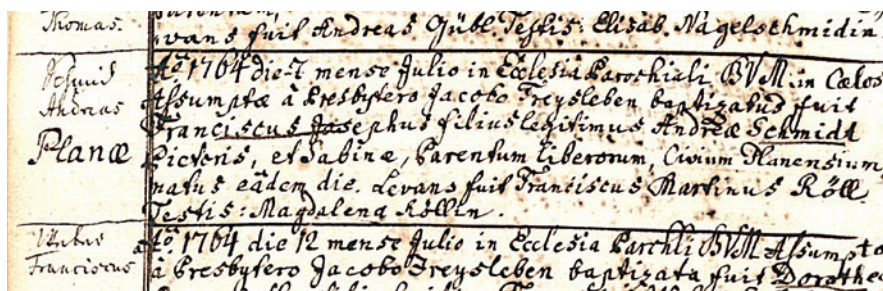 Thomas.
vans fuit Andreas Gübl. Testis: Elisab. Nagelschmidin.
Schmid
Andreas
Planæ
Aō. 1764 die 7 mense Julio in Ecclesia Parochiali BVM in Cœlos
Assumptæ à Presbytero Jacobo Freysleben baptizatus fuit
Franciscus Josephus filius legitimus Andreæ Schmidt
Pictoris, et Sabinæ, Parentum liberorum, Civium Planensium
natus eâdem die. Levans fuit Franciscus Martinus Röll.
Testis: Magdalena Röllin.
Franciscus
Aō. 1764 die 12 mense Julio in Ecclesia Parchli BVM Assumpta
à Presbytero Jacobo Freysleben baptizata fuit Dorothea